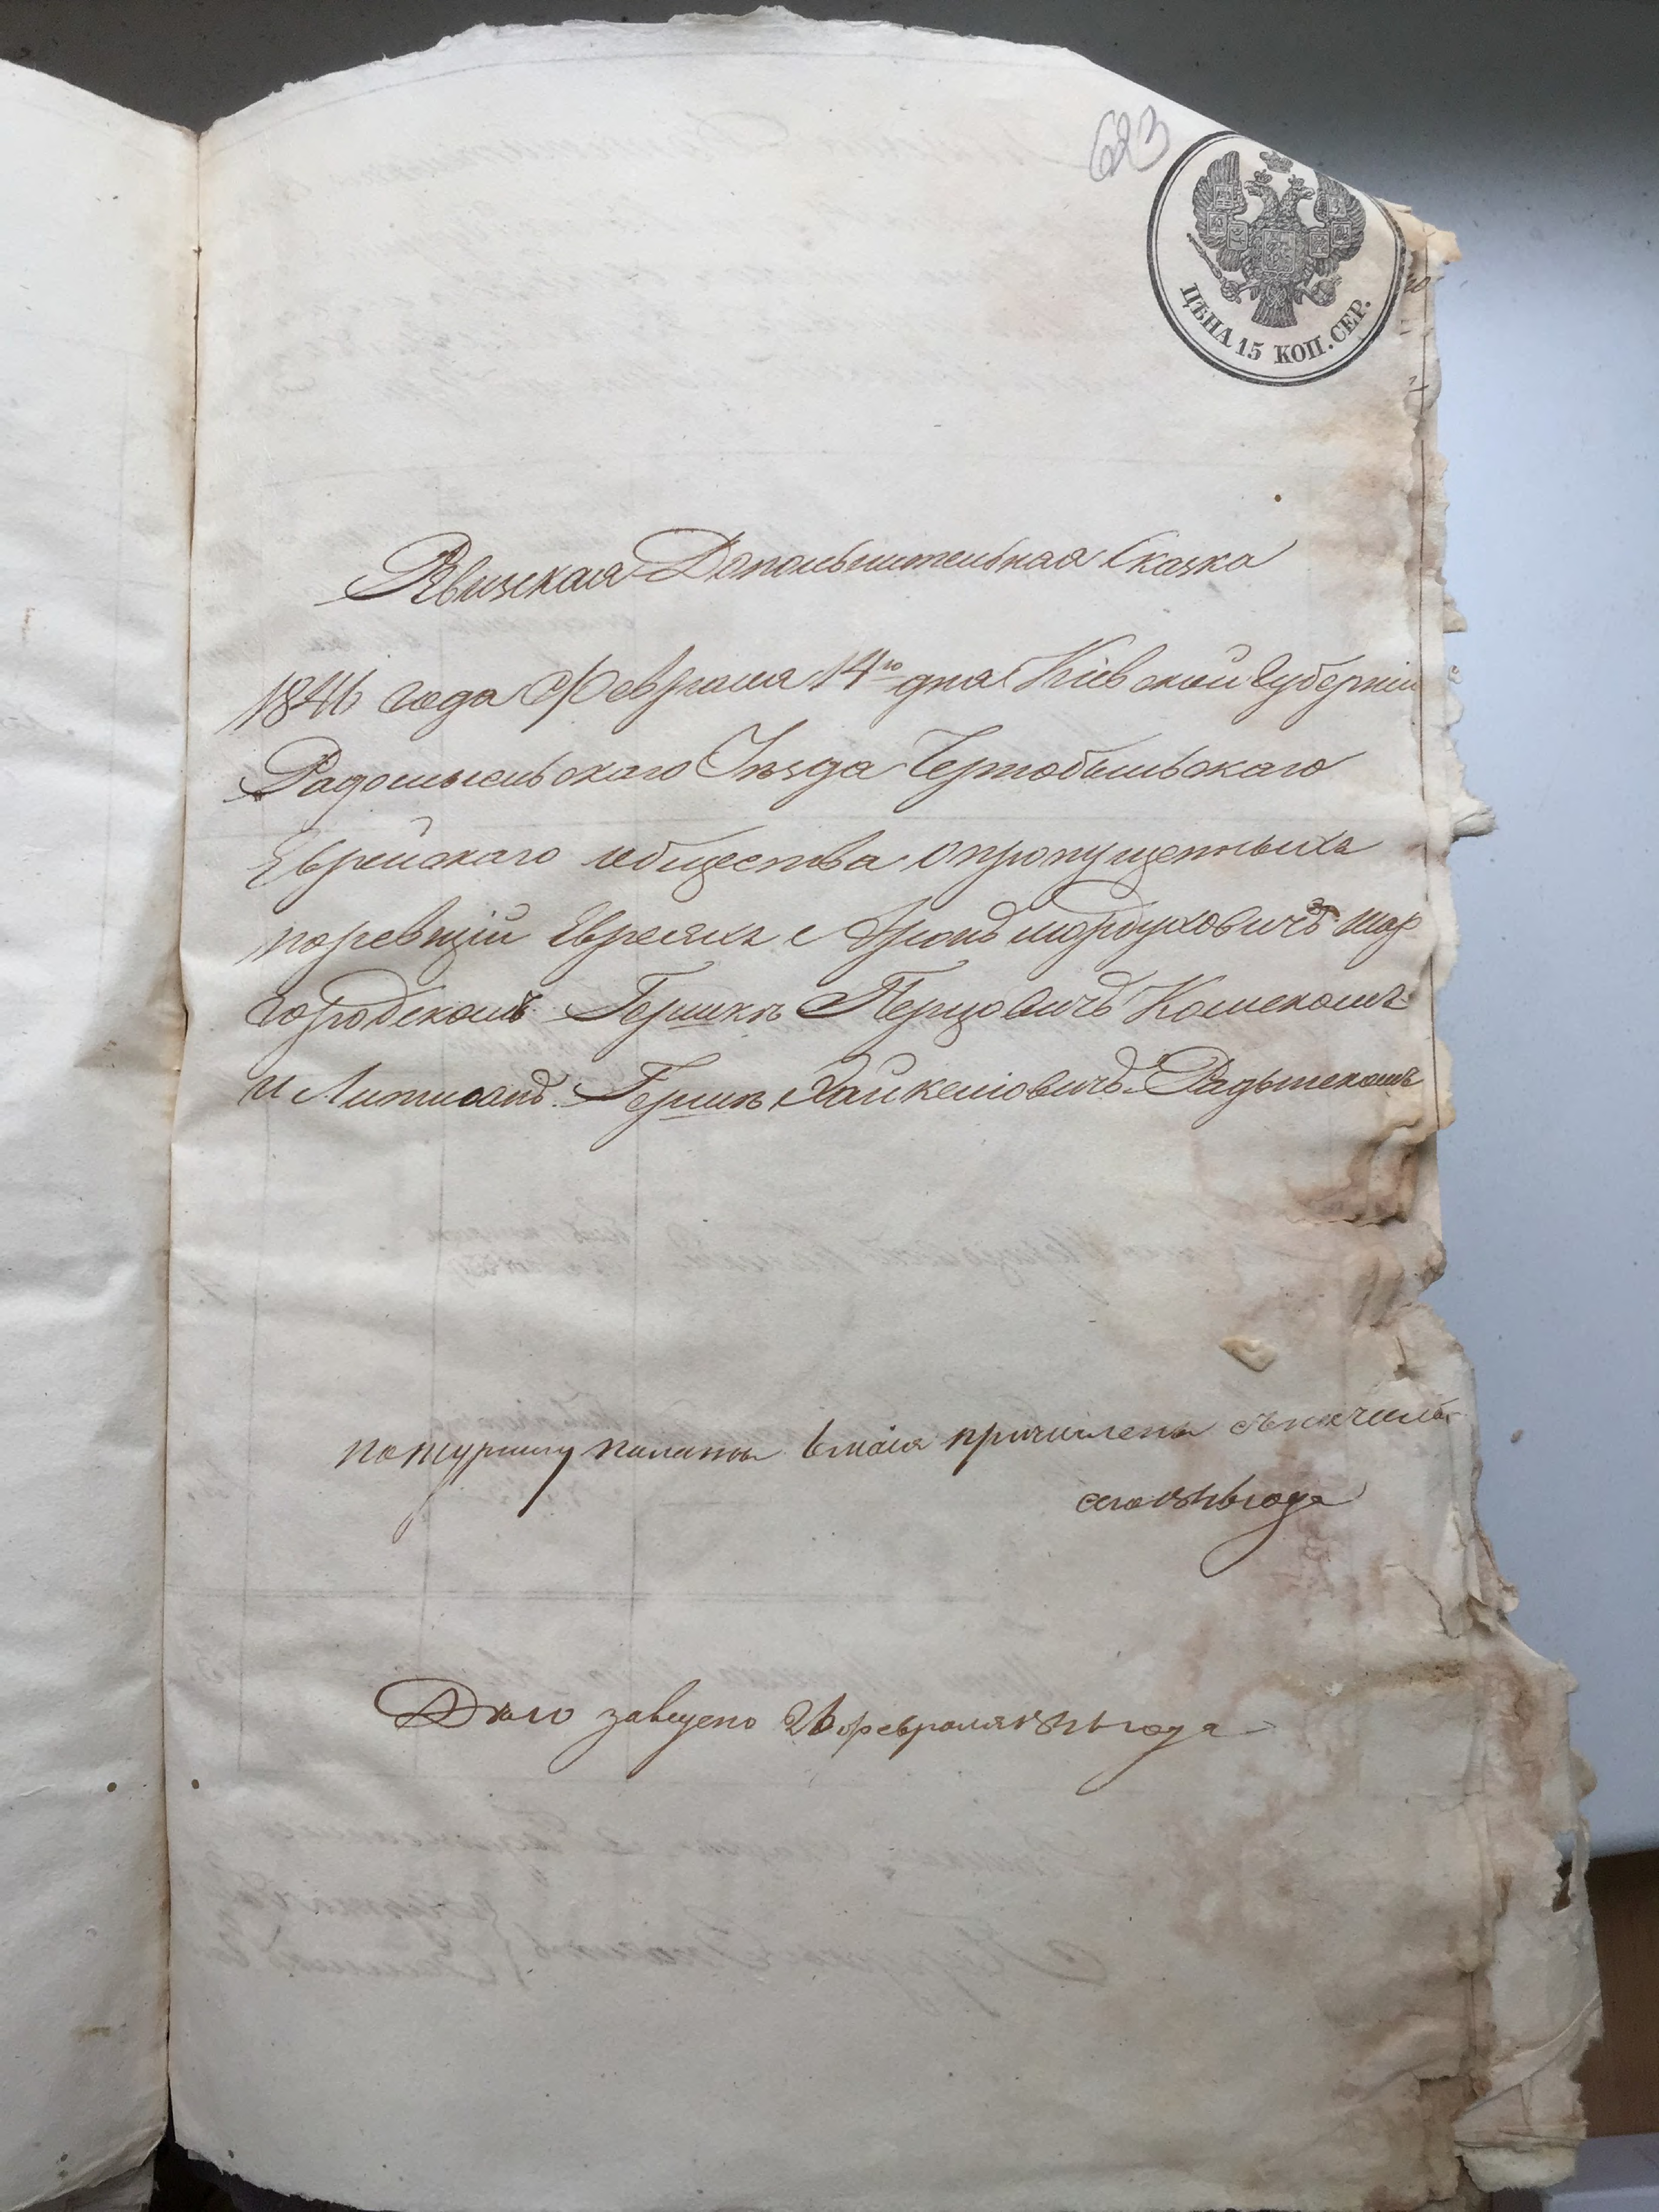 623
ЦѢНА 15 КОП. СЕР.
Ревизская Дополнительная Сказка
1846 года Февраля 14го дня Кіевской Губерніи
Радомысльскаго Уѣзда Чернобыльскаго
Еврейскаго общества о пропущенныхъ
по ревизіи Евреяхъ Мордуховичъ Шар
городскомъ Гершкѣ Перцовичѣ
и Гершкѣ
по журналу палаты 6 мая причислены съ начала
сего 1846 года
Дѣло заведено 26 февраля 1846 года